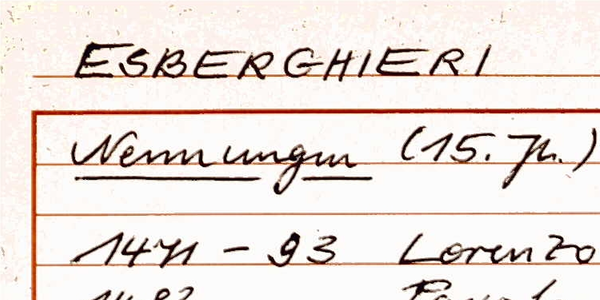 ESBERGHIERI
Nennungen (15. Jh.)
1471 - 93 Lorenzo